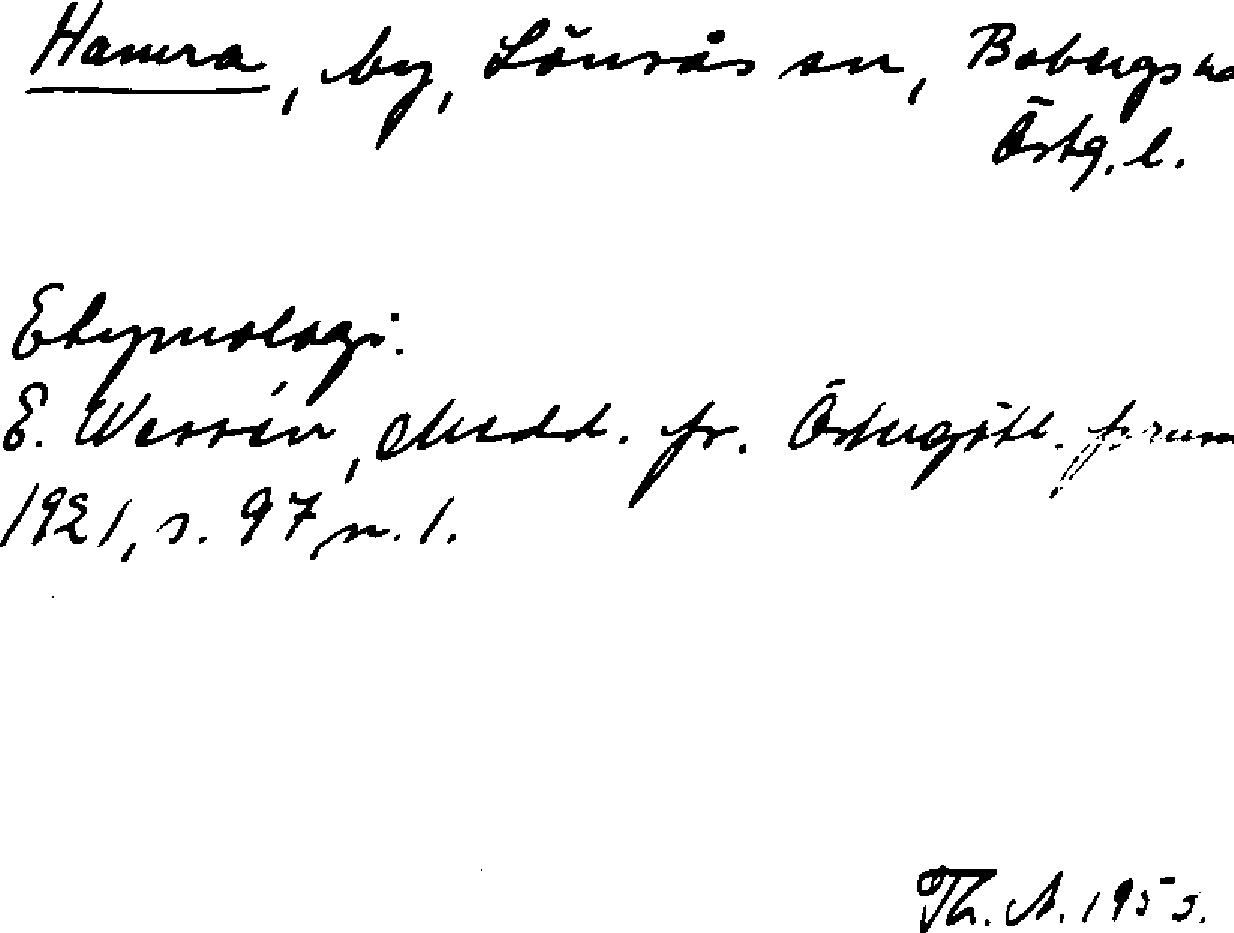 Hamra, by, Lönsås sn, Bobergs hd
Östg. l.
Etymologi.
E. Wessén, Medd. fr. Östergötl. fornm
1921, s. 97, n. 1.
Th. A. 1955.